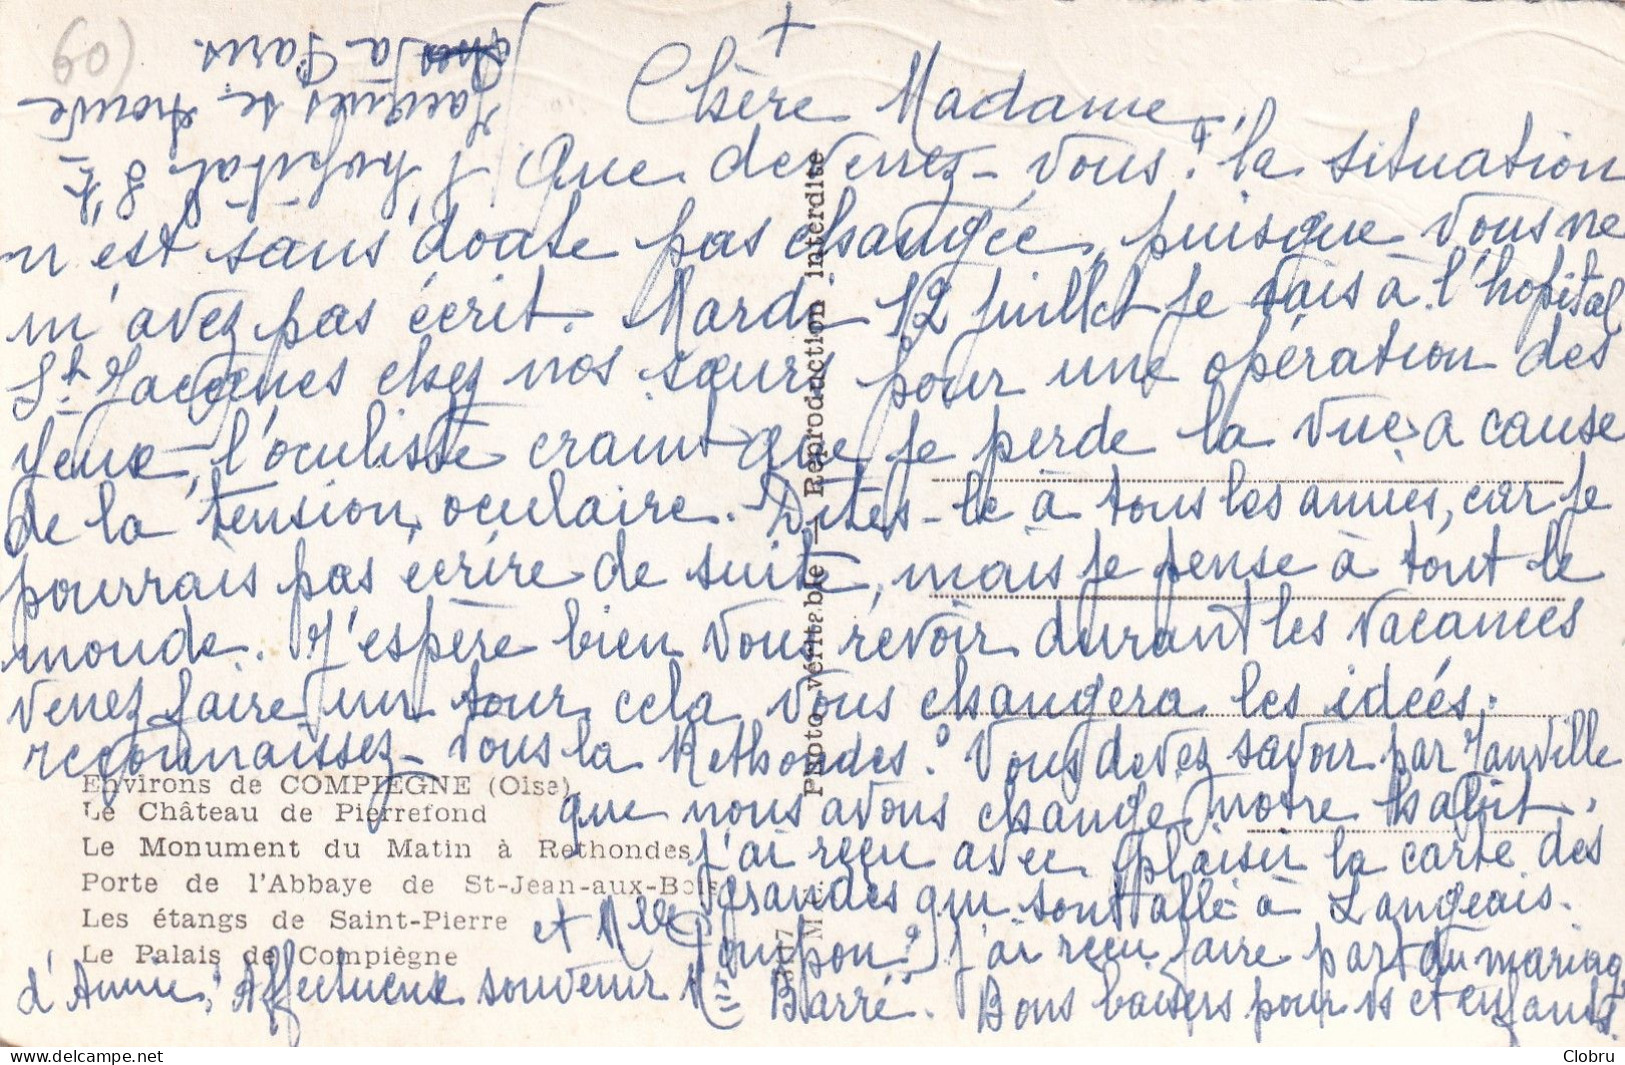 (60)
+
Chère Madame,
Que devenez-vous? la situation
n'est sans doute pas changée, puisque vous ne
m'avez pas écrit. Mardi 12 juillet je vais à l'hopital
St Jacques chez nos sœurs pour une opération des
yeux, l'oculiste craint que je perde la vue a cause
de la tension oculaire. Dites-le à tous les amies, car je
pourrais pas écrire de suite, mais je pense à tout le
monde. J'espère bien vous revoir durant les vacances
venez faire un tour cela vous changera les idées;
reconnaissez-vous la Rethondes? Vous devez savoir par Janville
que nous avons changé notre habit.
J'ai reçu avec plaisir la carte des
grandes qui sont allé à Langeais.
et Mlle Poupon? J'ai reçu faire part du mariag
d'Annie; Affectueux souvenir Barré. Bons baisers pour vs et enfants.
l'hôpital St
Jacques se trouve
à Paris.
Environs de COMPIEGNE (Oise)
Le Château de Pierrefond
Le Monument du Matin à Rethondes
Porte de l'Abbaye de St-Jean-aux-Bois
Les étangs de Saint-Pierre
Le Palais de Compiègne
Photo véritable — Reproduction interdite
Clobru